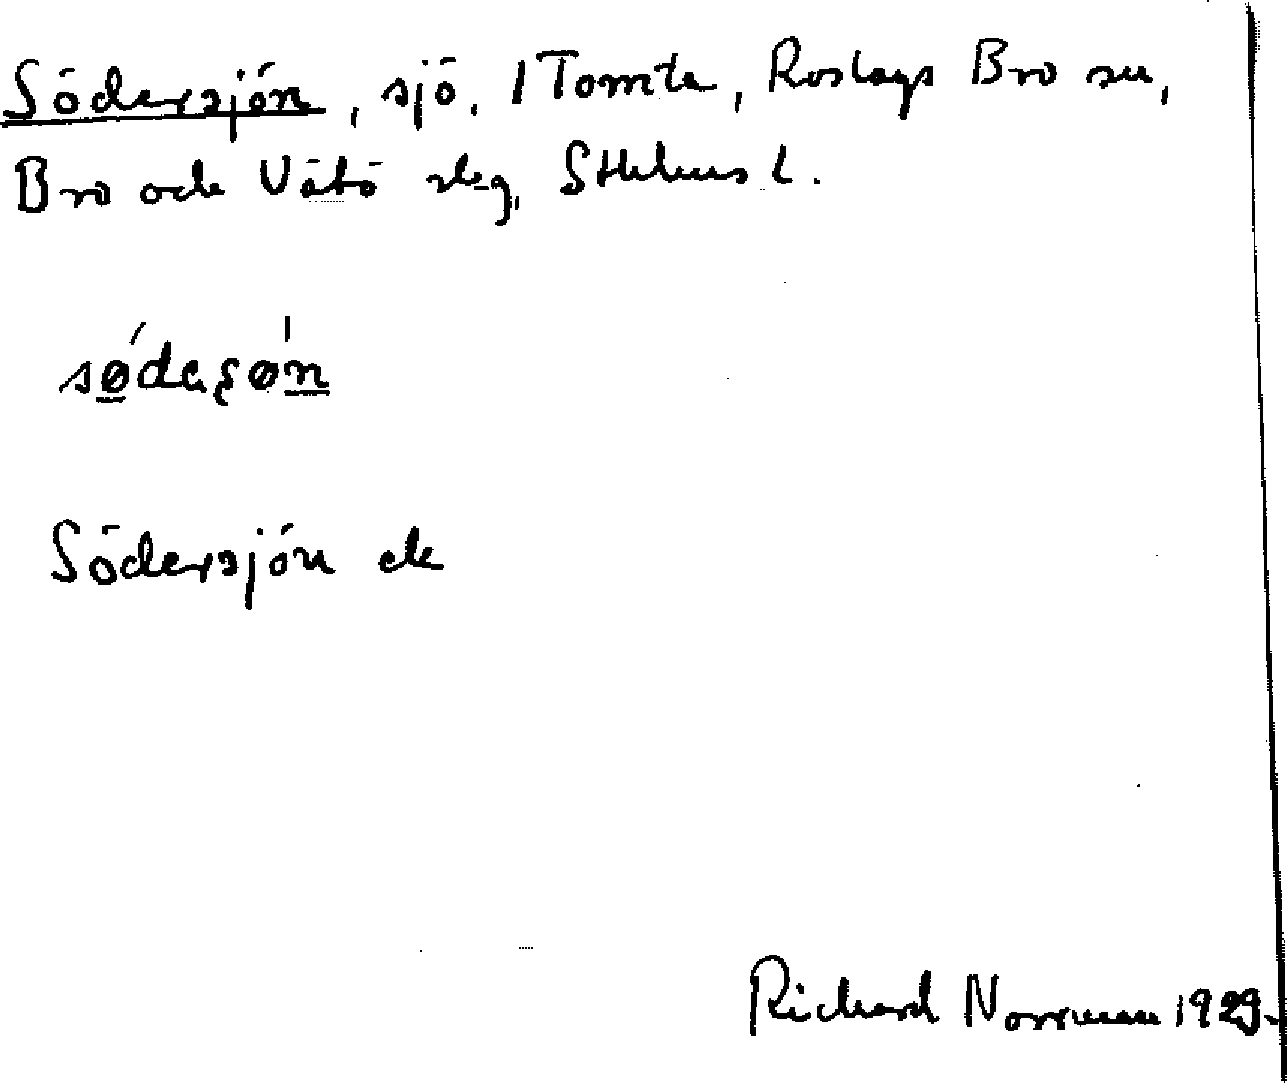 Södersjön, sjö, 1 Tomta, Roslags Bro sn,
Bro och Vätö slg, Sthlms l.
södeşøn
Södersjön ek
Richard Norrman 1929.